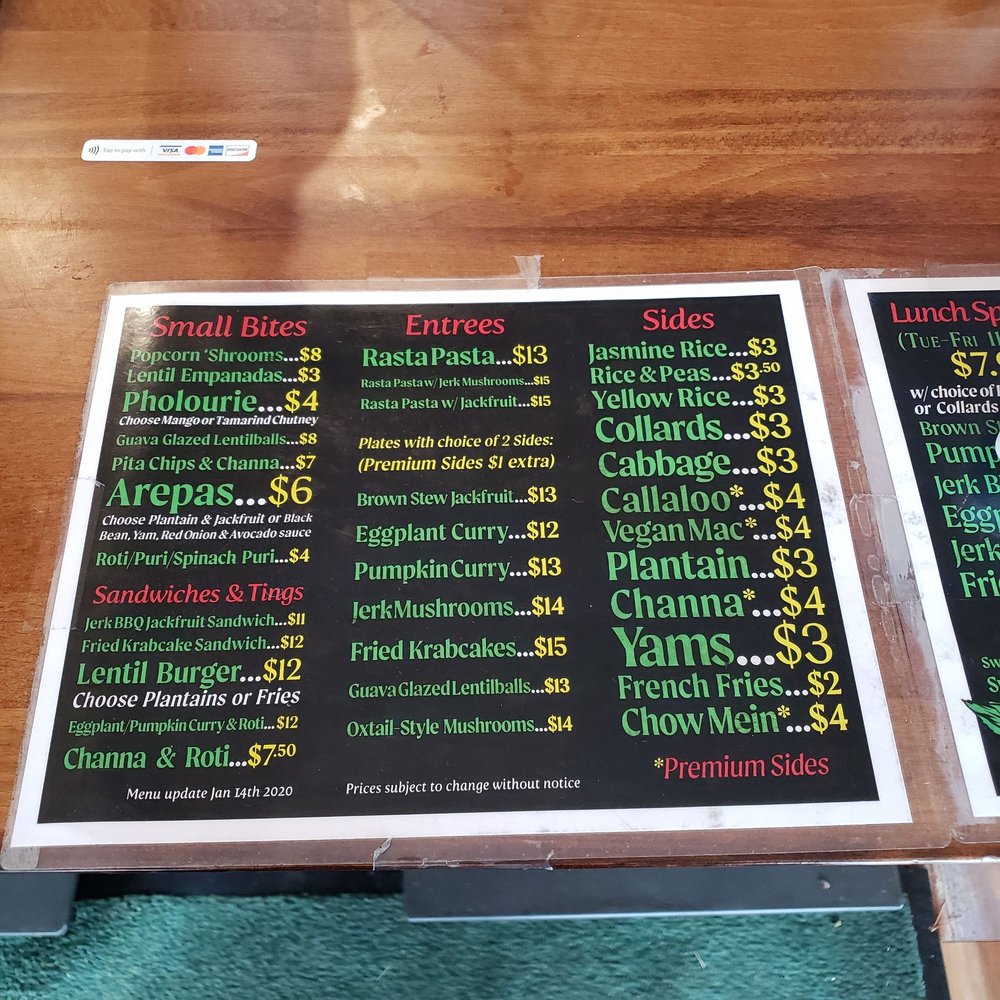 Tap to pay with VISA
Small Bites
Popcorn 'Shrooms...$8
Lentil Empanadas...$3
Pholourie...$4
Choose Mango or Tamarind Chutney
Guava Glazed Lentilballs...$8
Pita Chips & Channa...$7
Arepas...$6
Choose Plantain & Jackfruit or Black
Bean, Yam, Red Onion & Avocado sauce
Roti/Puri/Spinach Puri...$4
Sandwiches & Tings
Jerk BBQ Jackfruit Sandwich...$11
Fried Krabcake Sandwich...$12
Lentil Burger...$12
Choose Plantains or Fries
Eggplant/Pumpkin Curry & Roti...$12
Channa & Roti...$7.50
Menu update Jan 14th 2020
Entrees
Rasta Pasta...$13
Rasta Pasta w/ Jerk Mushrooms...$15
Rasta Pasta w/ Jackfruit...$15
Plates with choice of 2 Sides:
(Premium Sides $1 extra)
Brown Stew Jackfruit...$13
Eggplant Curry...$12
Pumpkin Curry...$13
Jerk Mushrooms...$14
Fried Krabcakes...$15
Guava Glazed Lentilballs...$13
Oxtail-Style Mushrooms...$14
Prices subject to change without notice
Sides
Jasmine Rice...$3
Rice & Peas...$3.50
Yellow Rice...$3
Collards...$3
Cabbage...$3
Callaloo*...$4
Vegan Mac*...$4
Plantain...$3
Channa*...$4
Yams...$3
French Fries...$2
Chow Mein*...$4
*Premium Sides
Lunch Sp
(Tue-Fri 1
$7.
w/ choice of
or Collards
Brown St
Pump
Jerk B
Eggp
Jerk
Fri
Sw